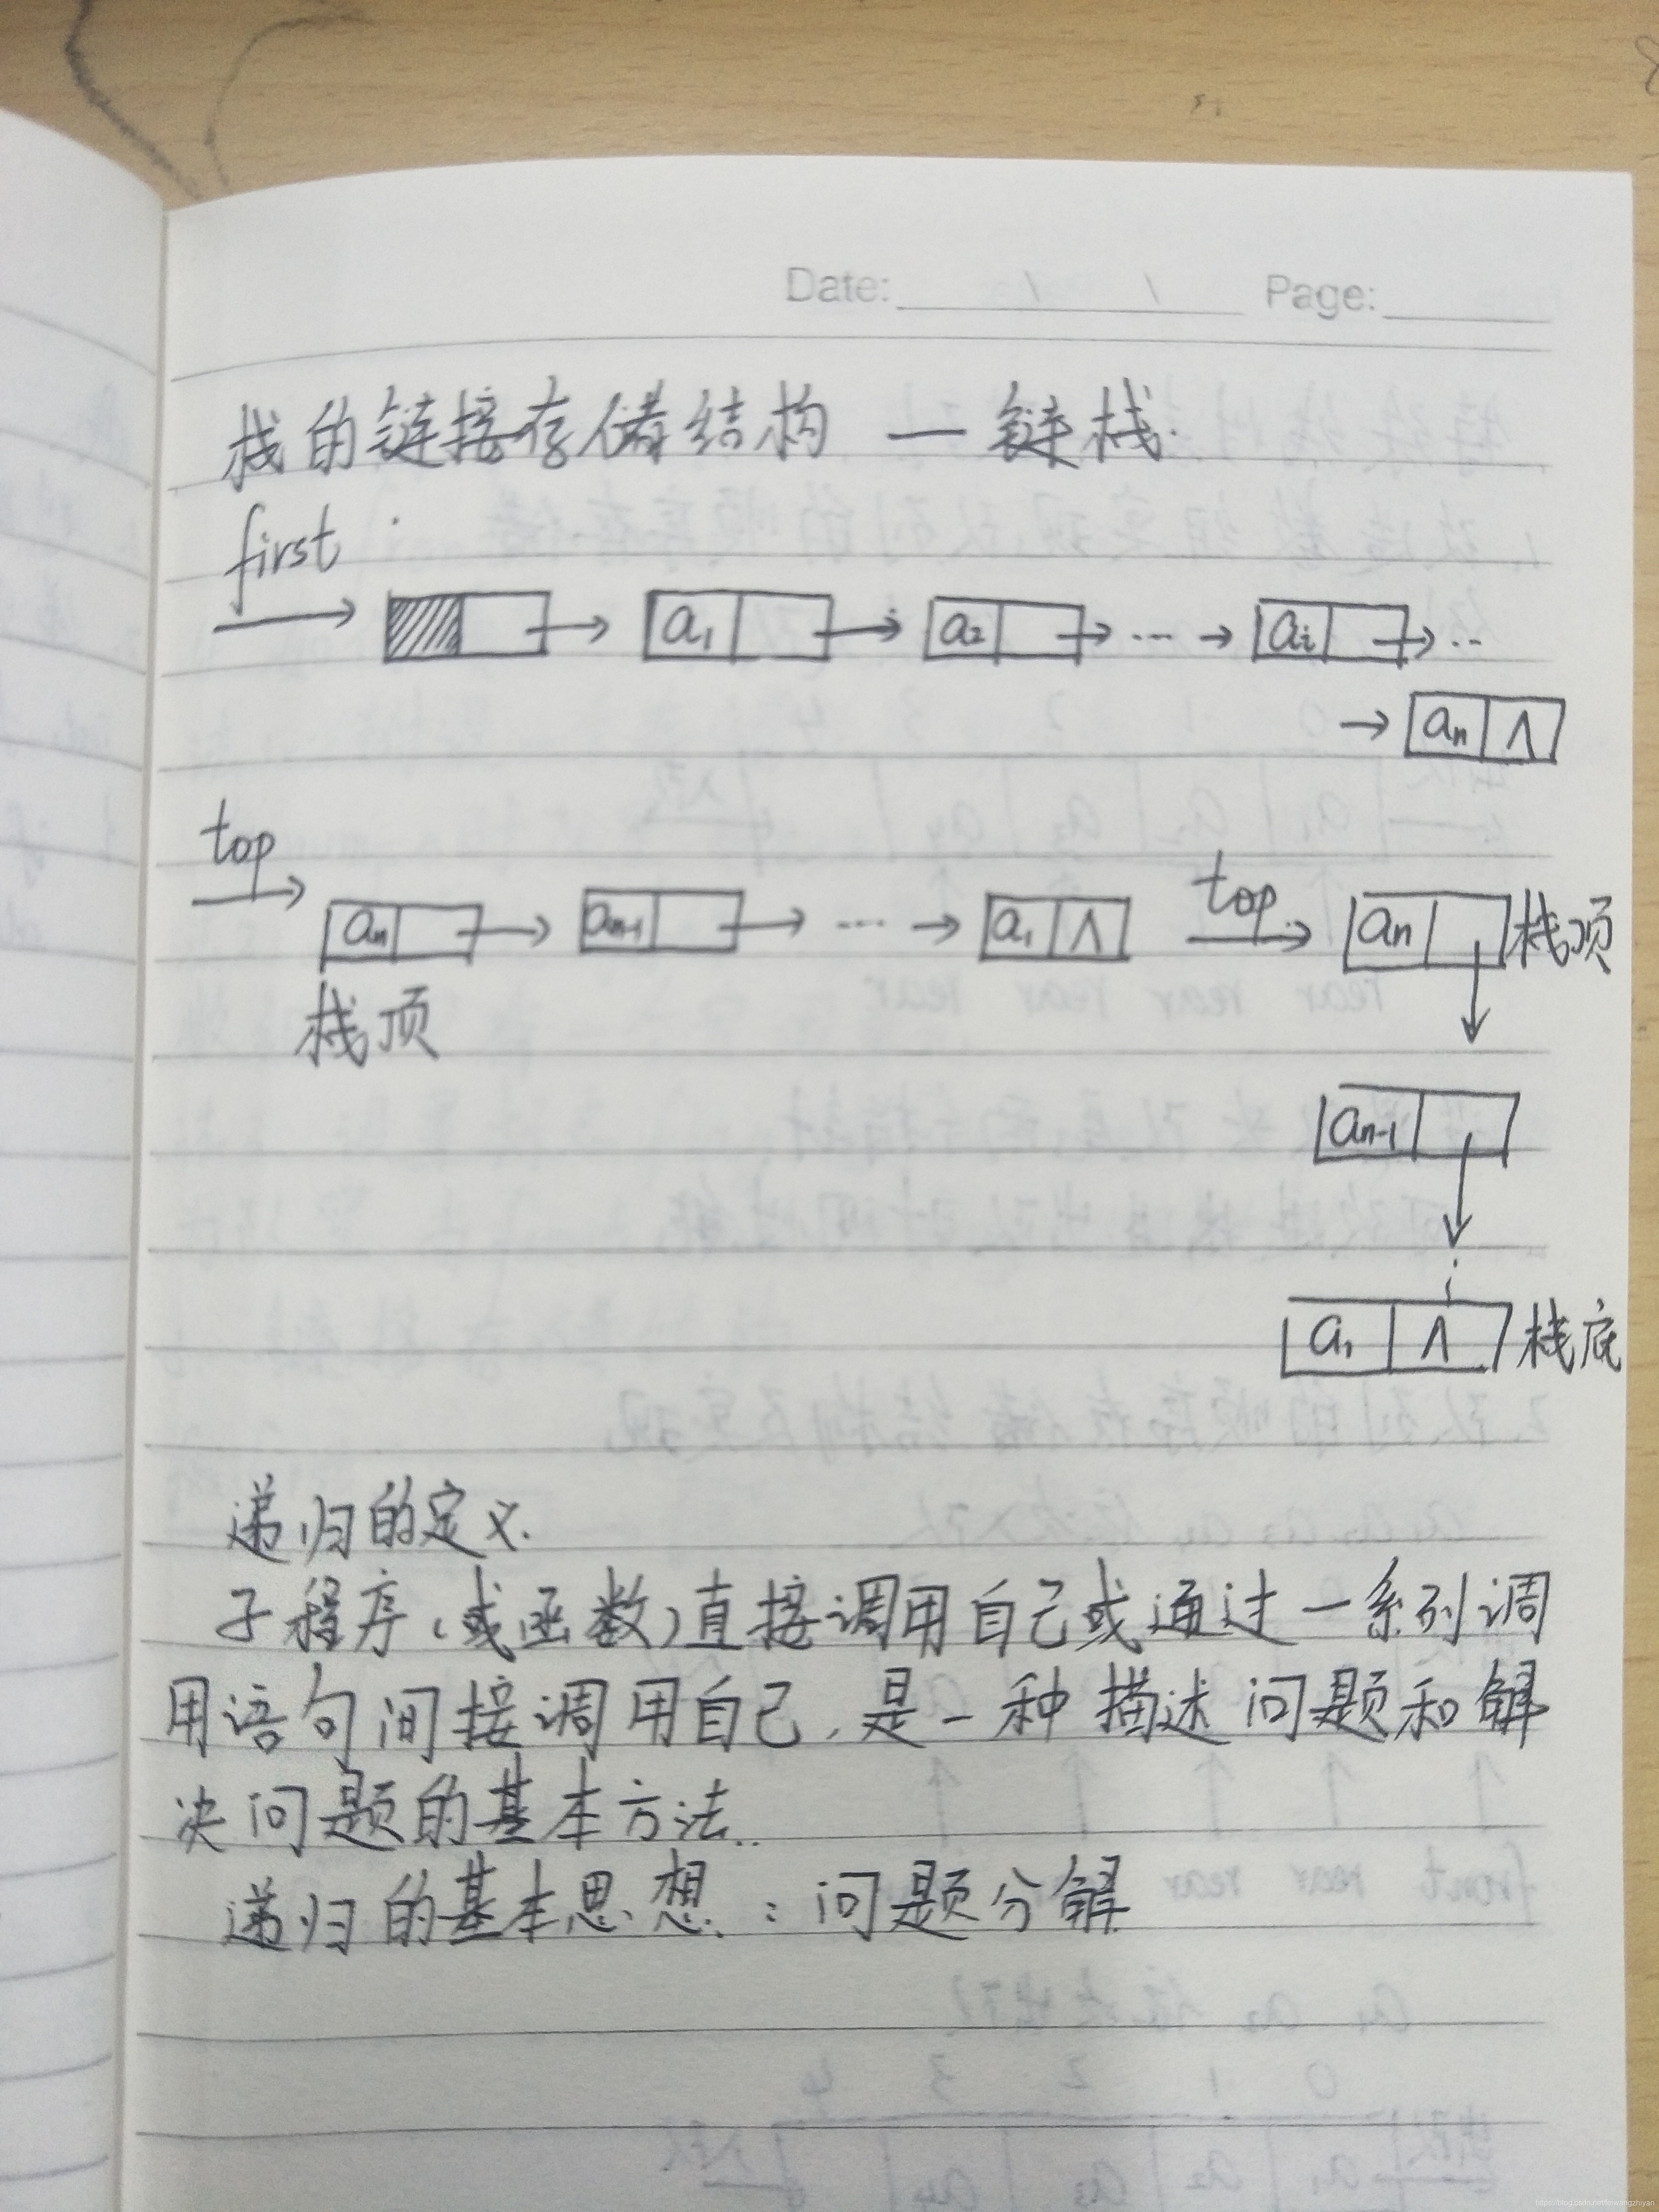 Date: / / Page:
栈的链接存储结构 — 链栈.
first
a1 a2 ... ai ..
an ∧
top
an an-1 .... a1 ∧ top an 栈顶
栈顶
an-1
a1 ∧ 栈底
递归的定义.
子程序(或函数)直接调用自己或通过一系列调
用语句间接调用自己,是一种描述问题和解
决问题的基本方法..
递归的基本思想:问题分解